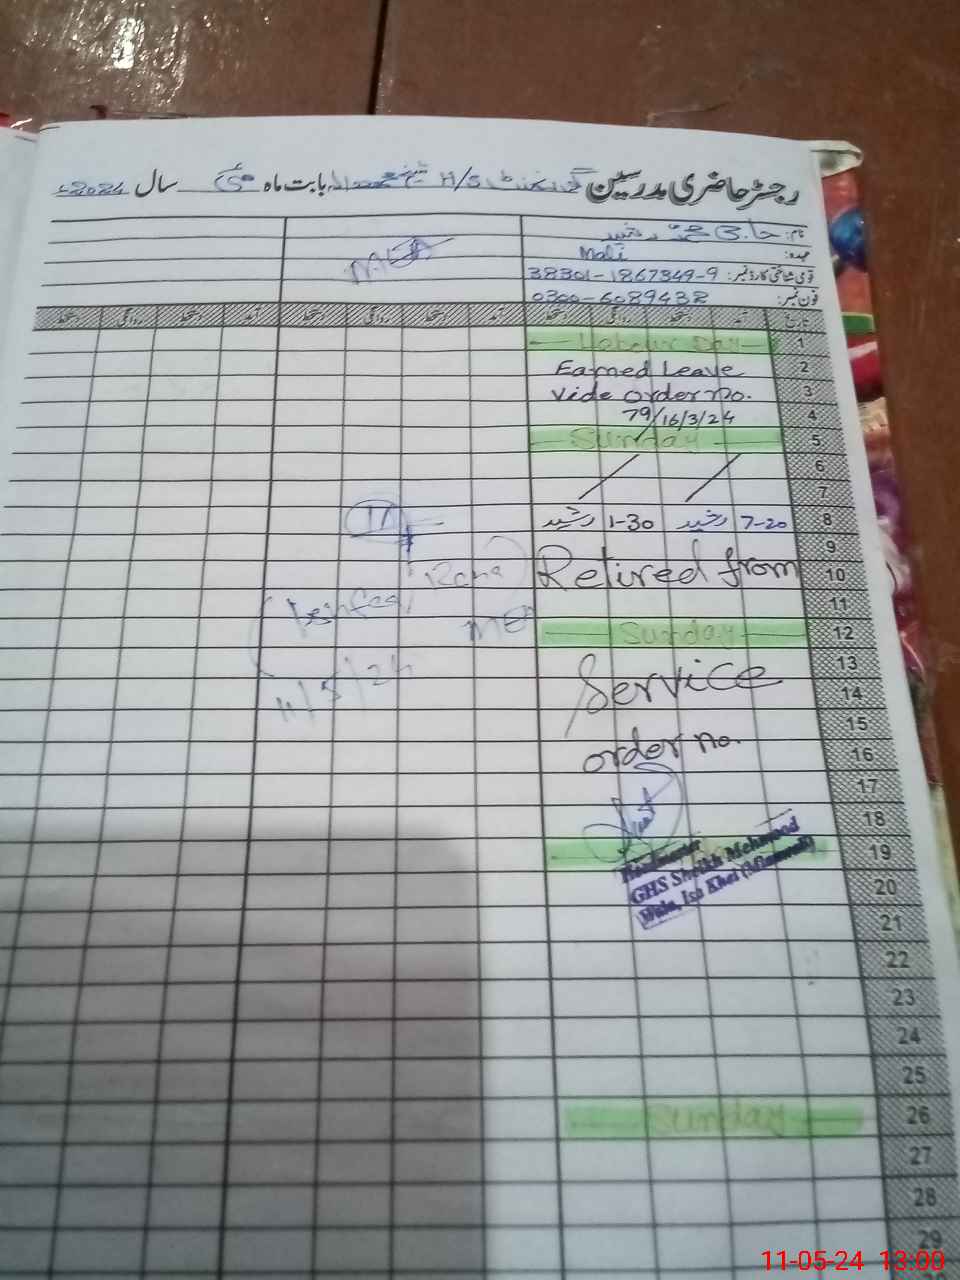 رجسٹر حاضری مدرسین گورنمنٹ H/S شیخ محمود والہ بابت ماہ مئی سال 2024ء
نام: حاجی محمد رشید
عہدہ: Mali
قومی شناختی کارڈ نمبر: 38301-1867349-9
فون نمبر: 0300-6089438
تاریخ آمد دستخط روانگی دستخط آمد دستخط روانگی دستخط
1 Labour Day
2 Earned Leave
3 Vide order no.
4 79/16/3/24
5 Sunday
6
7
8 7-20 رشید 1-30 رشید
9
10 Retired from
11
12 Sunday
13
14 Service
15
16 order no.
17
18
19
Headmaster
GHS Sheikh Mehmood
Wala, Isa Khel (Mianwali)
20
21
22
23
24
25
26 Sunday
27
28
29
MEA
Rana
MEA
11/5/24
11-05-24 13:00